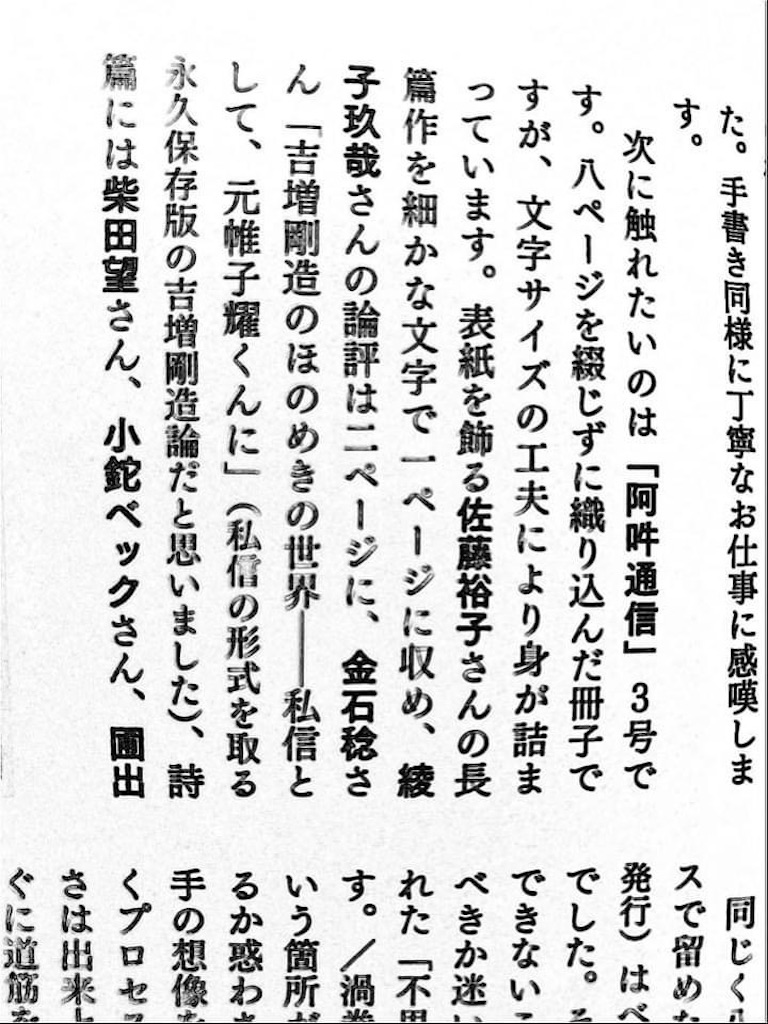 た。手書き同様に丁寧なお仕事に感嘆しま
す。
次に触れたいのは「阿吽通信」3号で
す。八ページを綴じずに織り込んだ冊子で
すが、文字サイズの工夫により身が詰ま
っています。表紙を飾る佐藤裕子さんの長
篇作を細かな文字で一ページに収め、綾
子玖哉さんの論評は二ページに、金石稔さ
ん「吉増剛造のほのめきの世界――私信と
して、元帷子耀くんに」(私信の形式を取る
永久保存版の吉増剛造論だと思いました)、詩
篇には柴田望さん、小鉈ベックさん、圃出
同じく
スで留めた
発行)はペ
でした。そ
できないこ
べきか迷い
れた「不用
す。/渦巻
いう箇所が
るか惑わさ
手の想像を
くプロセス
さは出来上
ぐに道筋を